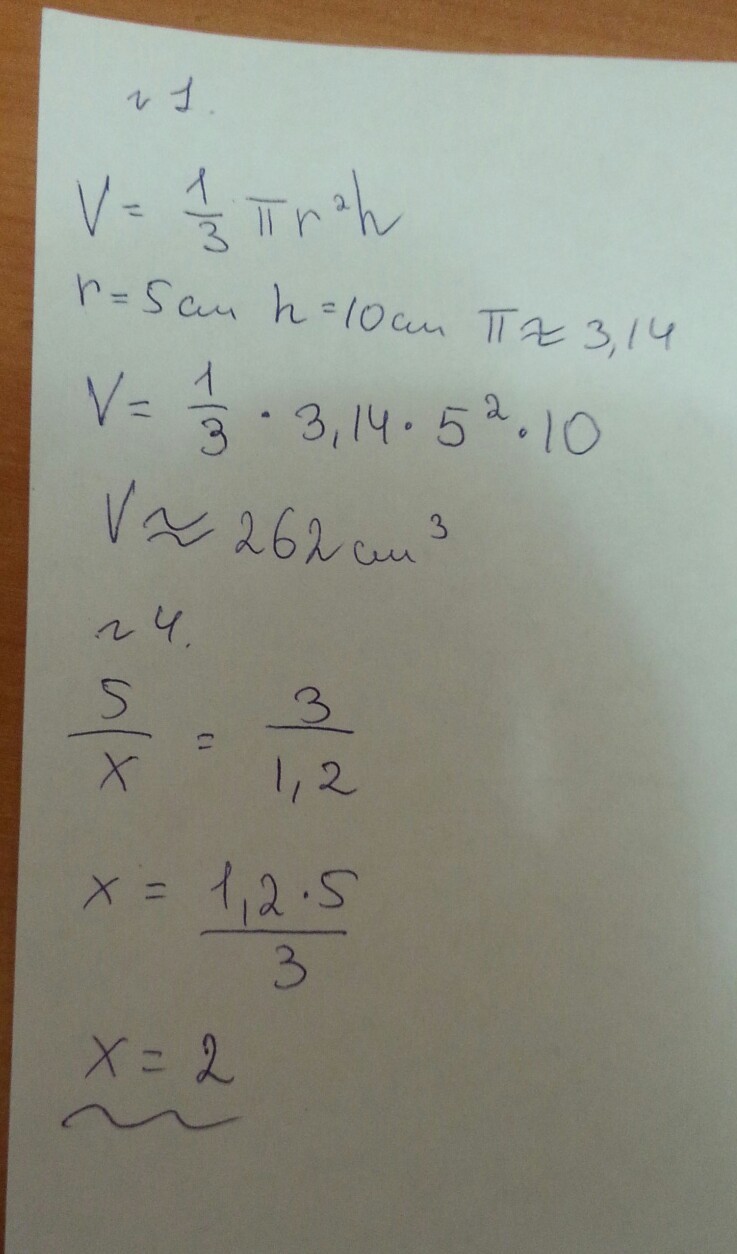 №1.
V = 1/3 πr²h
r = 5 см h = 10 см π ≈ 3,14
V = 1/3 · 3,14 · 5² · 10
V ≈ 262 см³
№4.
5/x = 3/1,2
x = 1,2·5/3
x = 2